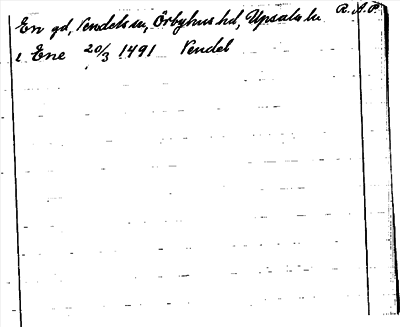 En gd, Vendels sn, Örbyhus hd, Upsala ln R.A.P.
i Ene 20/3 1491 Vendel